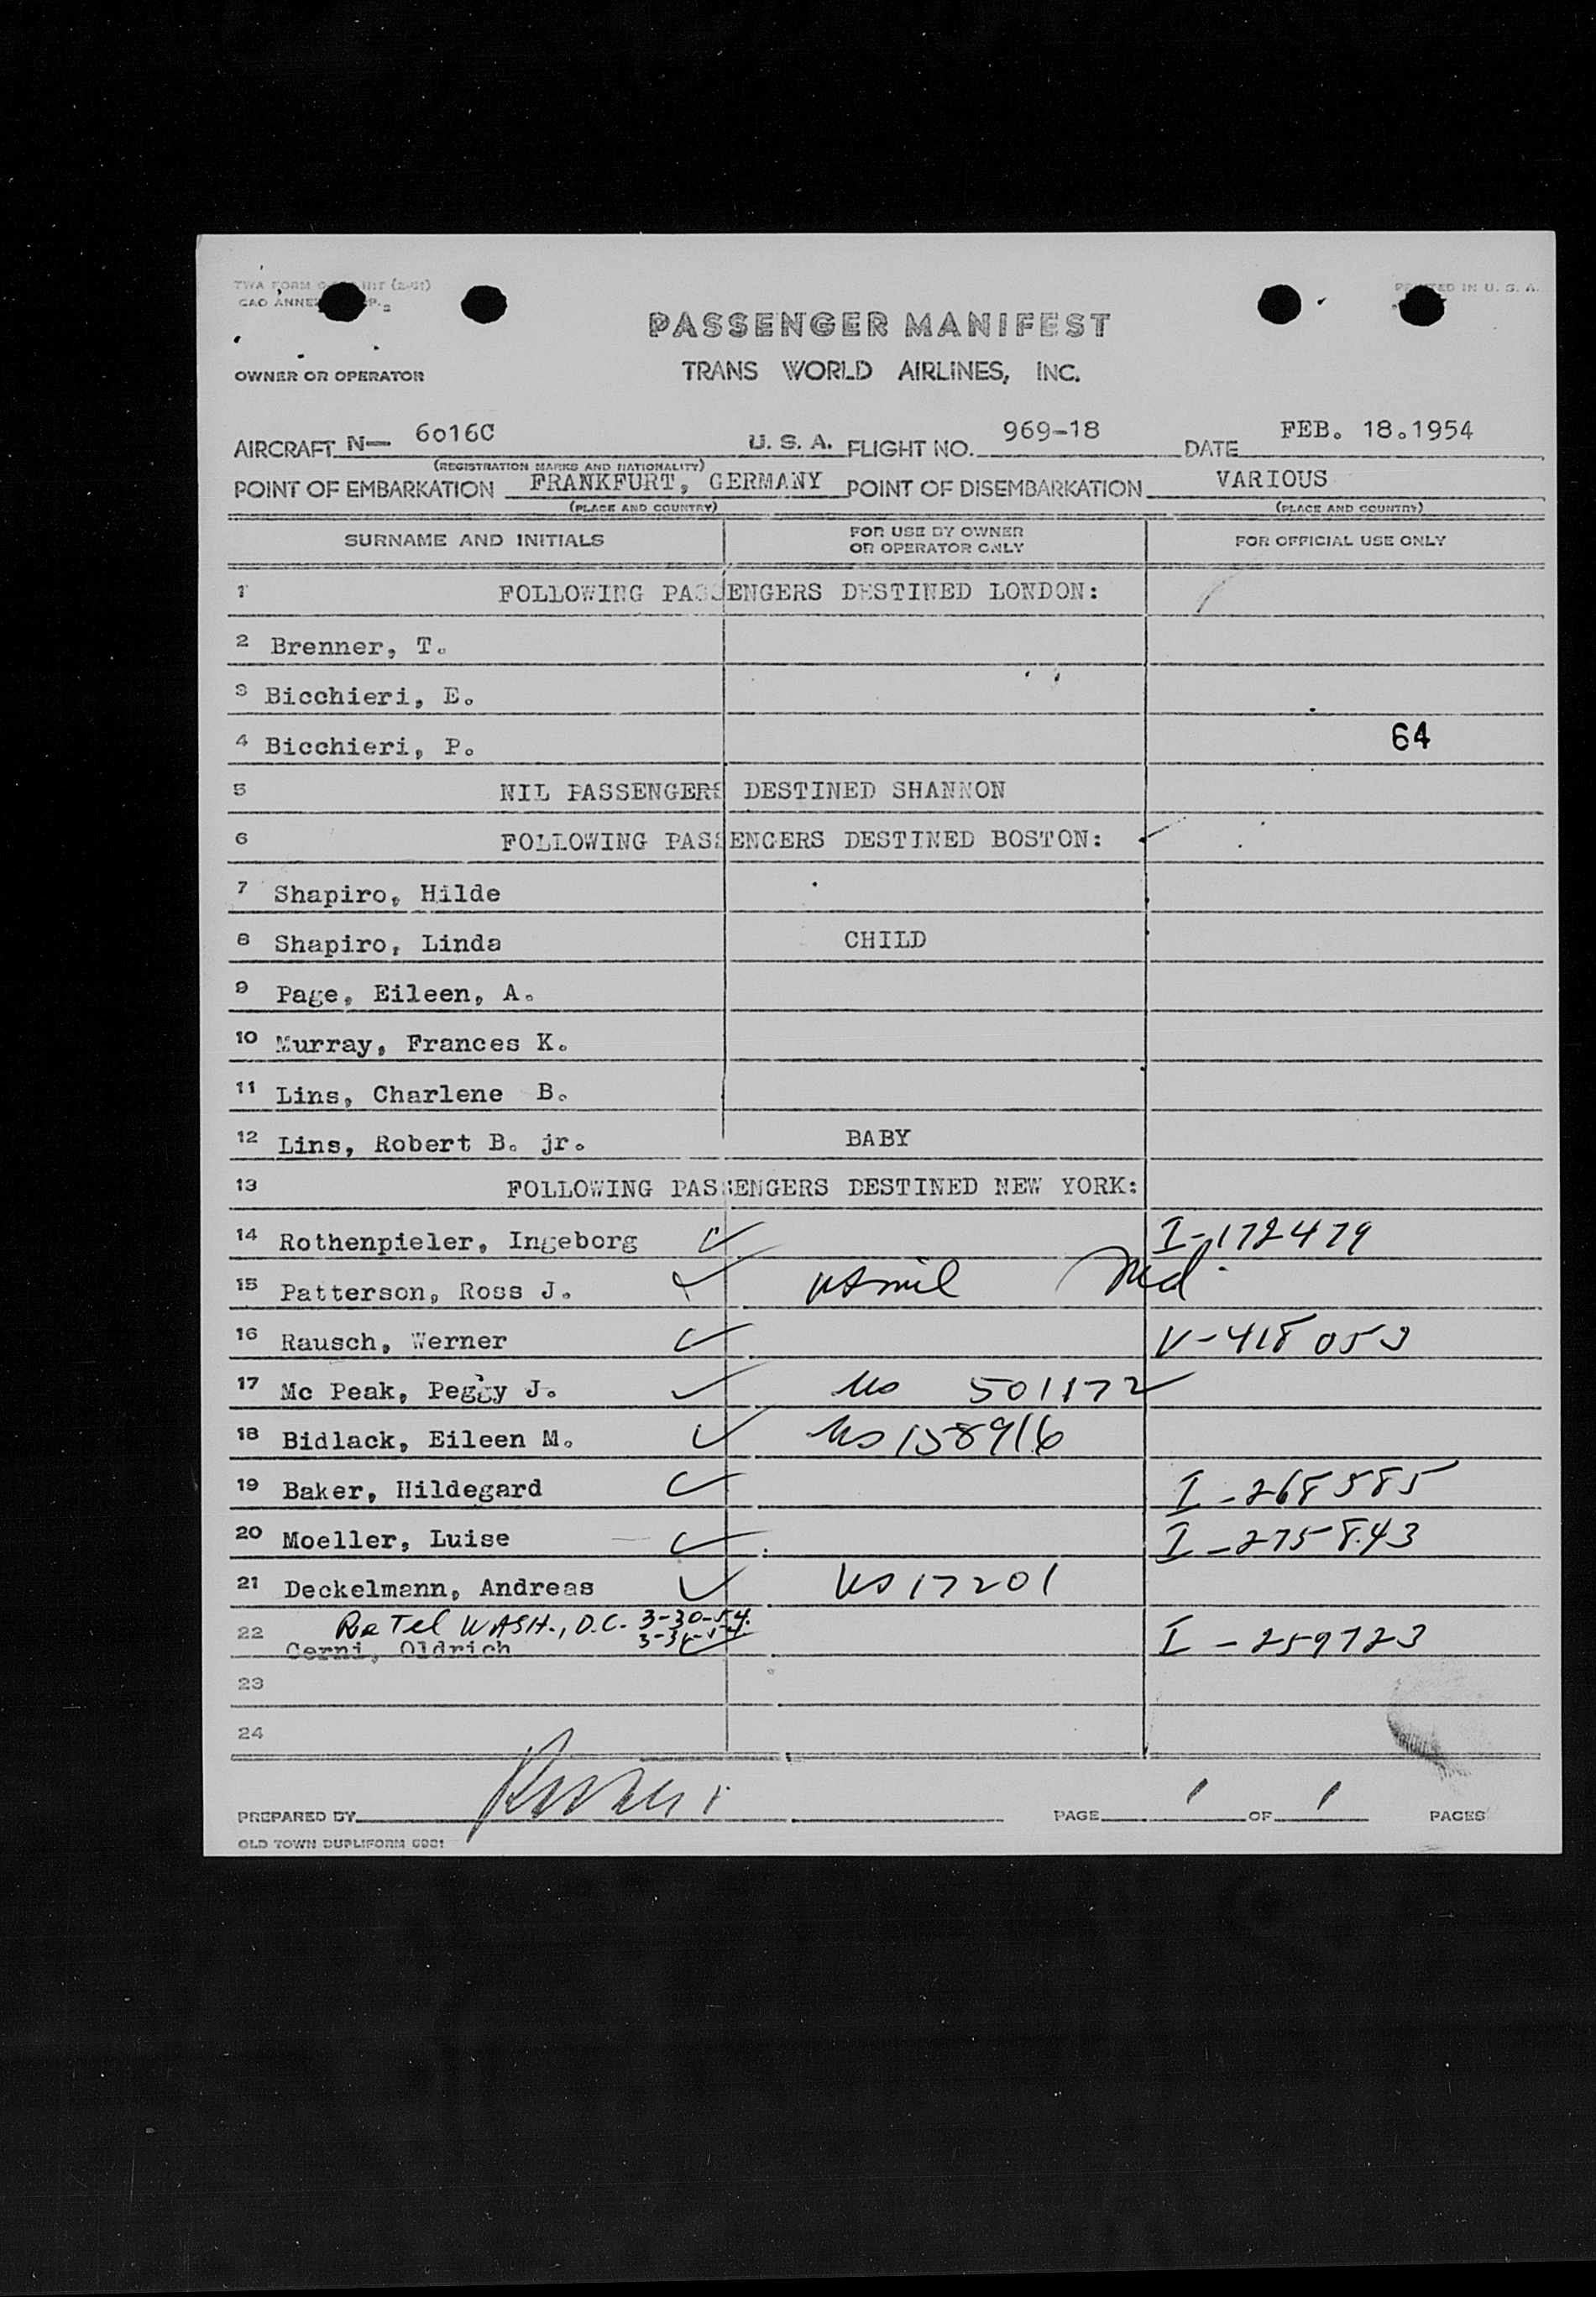 PRINTED IN U. S. A.
PASSENGER MANIFEST
OWNER OR OPERATOR TRANS WORLD AIRLINES, INC.
AIRCRAFT N— 6016C U. S. A. FLIGHT NO. 969-18 DATE FEB. 18.1954
(REGISTRATION MARKS AND NATIONALITY)
POINT OF EMBARKATION FRANKFURT, GERMANY POINT OF DISEMBARKATION VARIOUS
(PLACE AND COUNTRY) (PLACE AND COUNTRY)
SURNAME AND INITIALS FOR USE BY OWNER OR OPERATOR ONLY FOR OFFICIAL USE ONLY
1 FOLLOWING PASSENGERS DESTINED LONDON:
2 Brenner, T.
3 Bicchieri, E.
4 Bicchieri, P. 64
5 NIL PASSENGERS DESTINED SHANNON
6 FOLLOWING PASSENGERS DESTINED BOSTON:
7 Shapiro, Hilde
8 Shapiro, Linda CHILD
9 Page, Eileen, A.
10 Murray, Frances K.
11 Lins, Charlene B.
12 Lins, Robert B. jr. BABY
13 FOLLOWING PASSENGERS DESTINED NEW YORK:
14 Rothenpieler, Ingeborg I-172479
15 Patterson, Ross J. USmil
16 Rausch, Werner V-418053
17 Mc Peak, Peggy J. US 501172
18 Bidlack, Eileen M. US 158916
19 Baker, Hildegard I-268585
20 Moeller, Luise I-275843
21 Deckelmann, Andreas US 17201
Re Tel WASH., D.C. 3-30-54.
22 Cerni, Oldrich I-259723
23
24
PREPARED BY PAGE 1 OF 1 PAGES
OLD TOWN DUPLIFORM